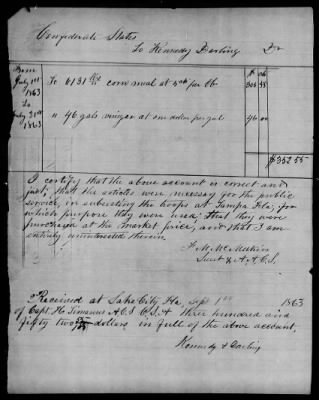 Confederate States
To Kennedy & Darling Dr
From
July 1st
1863
To
July 31st
1863
To 6131 lbs corn meal at 5 cts per lb 306 55
" 46 gals vinegar at one dollar per gal 46 00
$352 55
I certify that the above account is correct and
just, that the articles were necessary for the public
service, in subsisting the troops at Tampa Fla; for
which purpose they were used; that they were
purchased at the market price, and that I am
entirely uninterested therein
Lieut & A.A.C.S.
Received at Lake City, Fla, Sept 1st 1863
of Capt. H. A C S C.S.A three hundred and
fifty two 55/100 dollars in full of the above account,
Kennedy & Darling